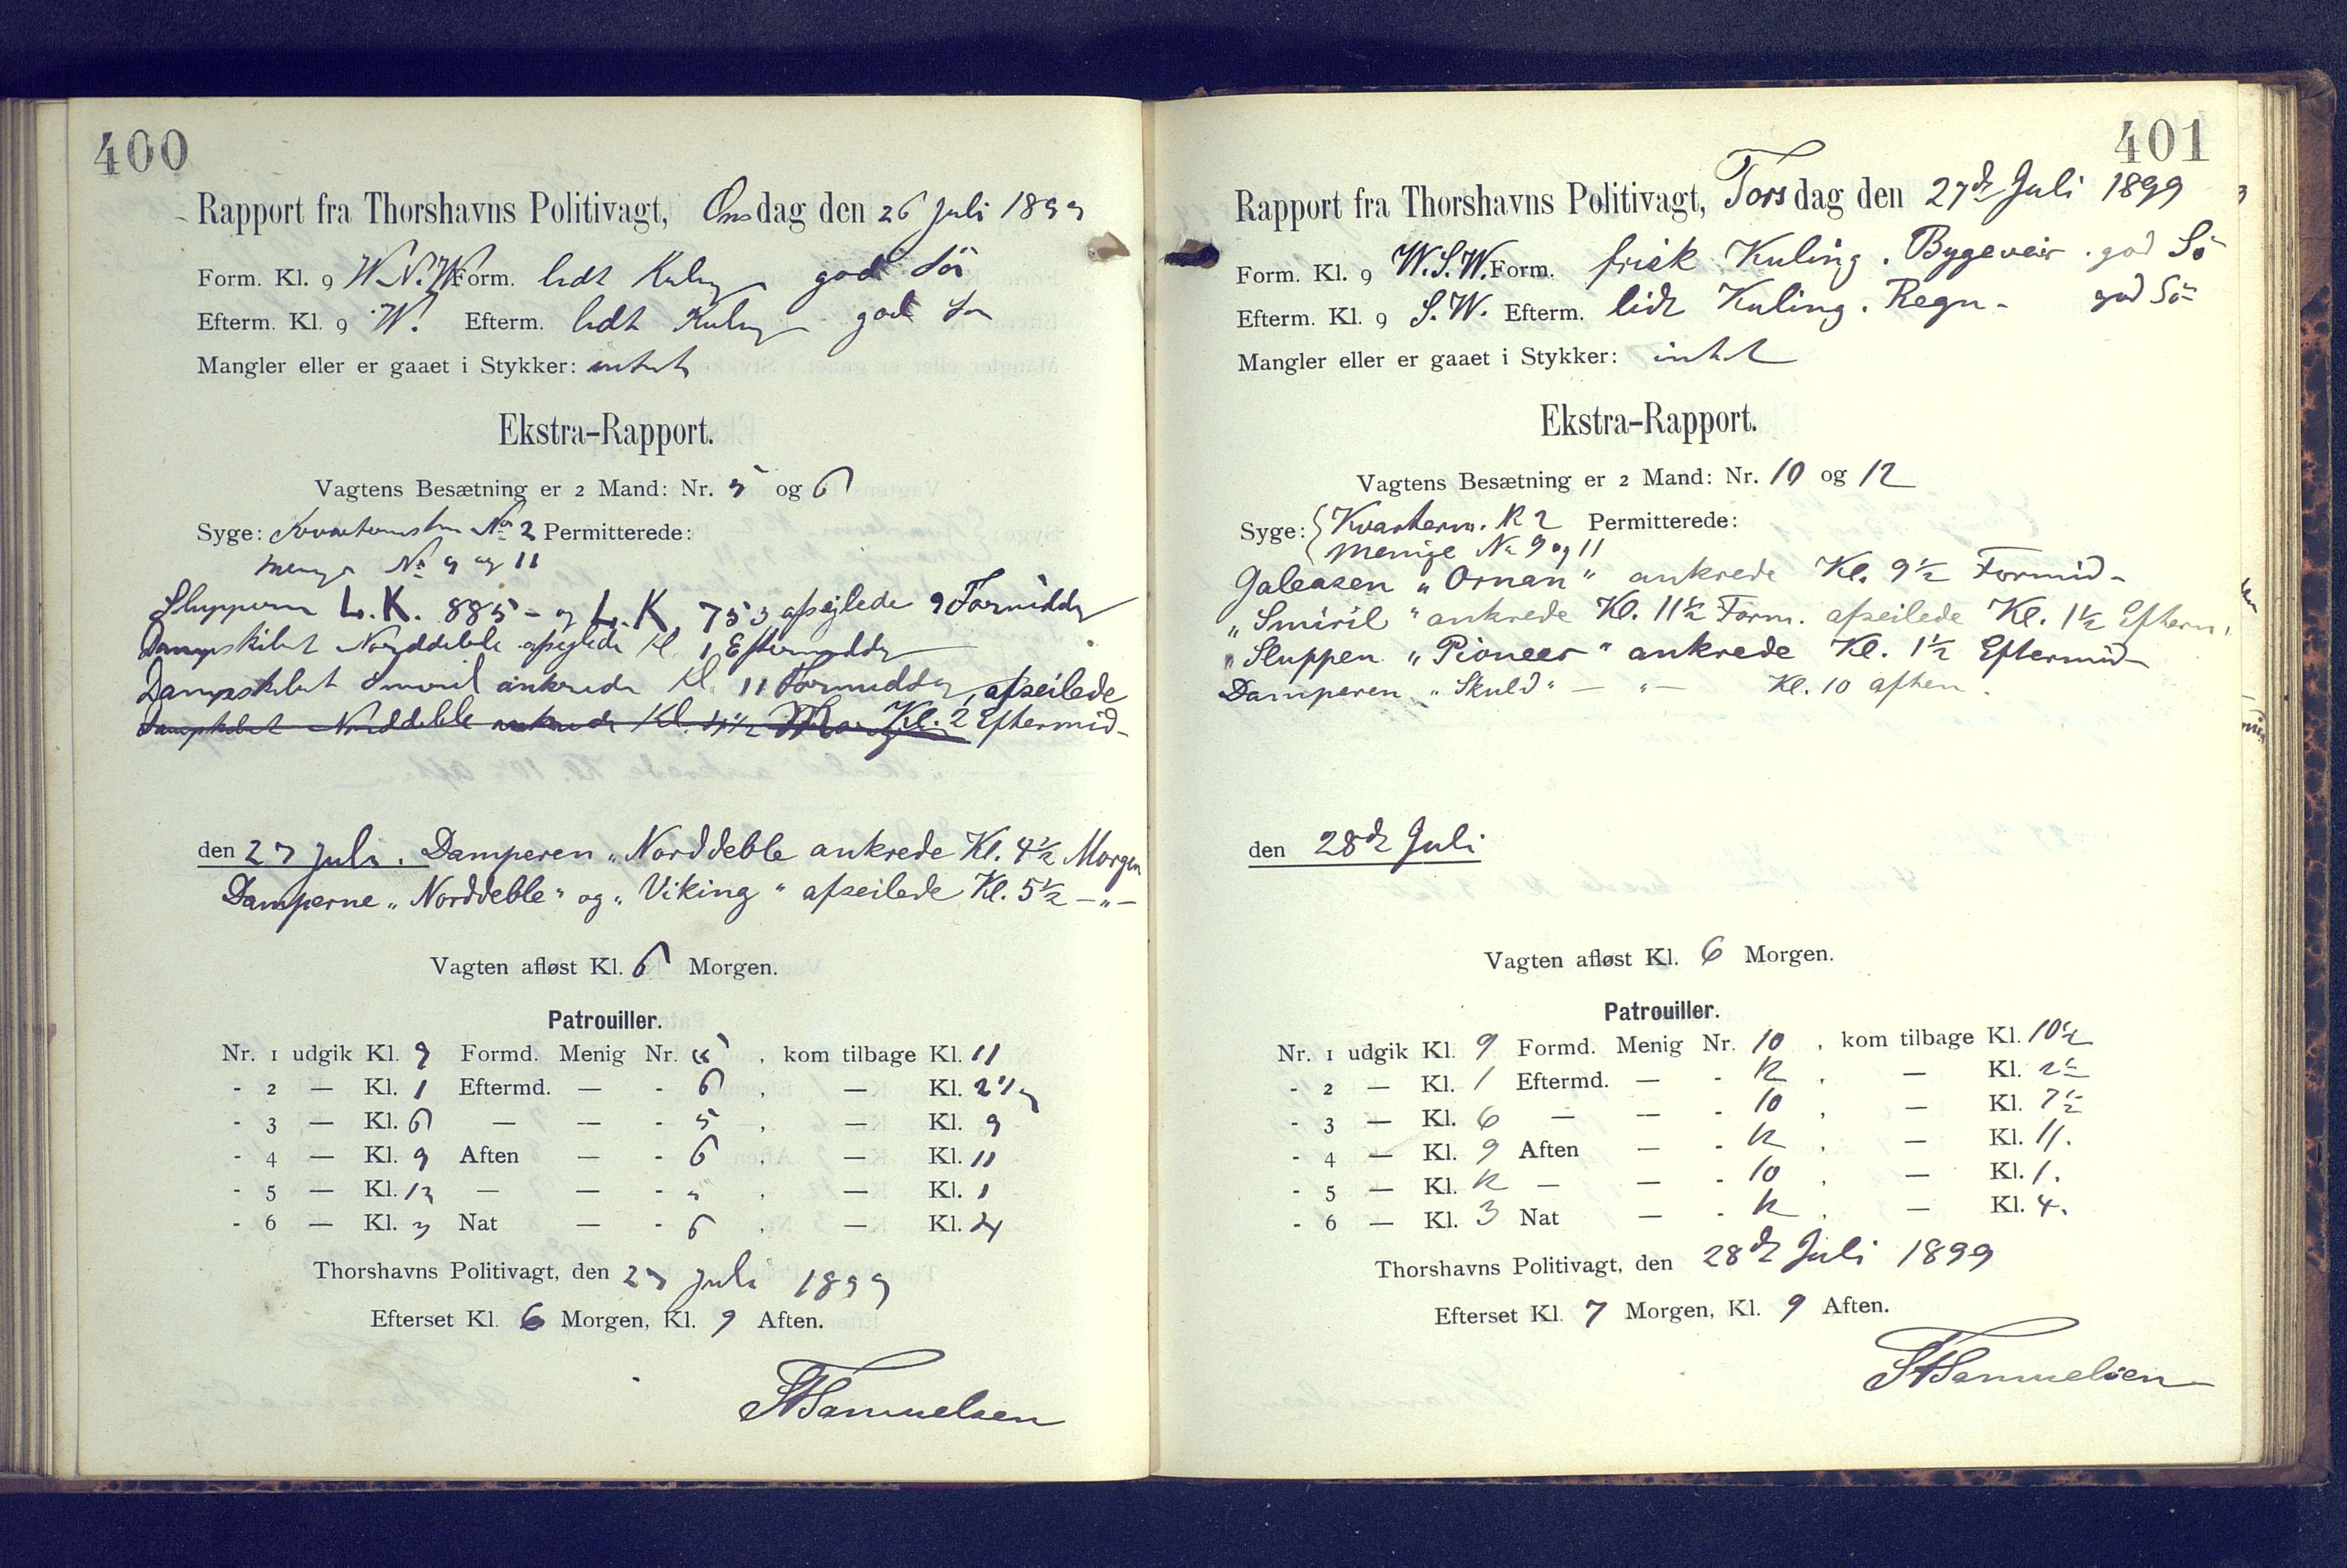 400
Rapport fra Thorshavns Politivagt, Onsdag den 26 Juli 1899
Form. Kl. 9 W.N.W. Form. lidt Kuling god Sö
Efterm. Kl. 9 W. Efterm. lidt Kuling god Sö
Mangler eller er gaaet i Stykker: intet
Ekstra-Rapport.
Vagtens Besætning er 2 Mand: Nr. 5 og 6
Syge: No 2 Permitterede:
Menige No 9 og 11
Slupperne L.K. 885 - og L.K. 753 afsejlede 9 Formiddag
Dampskibet Norddeble afsejlede Kl. 1 Eftermiddag
Dampskibet Smiril ankrede Kl. 11 Formiddag, afseilede
Dampskibet Norddeble ankrede Kl. 4½ Morgen Kl. 2 Eftermid-
den 27 Juli. Damperen „Norddeble ankrede Kl. 4½ Morgen
Damperne „Norddeble" og „Viking" afseilede Kl. 5½ -"-
Vagten afløst Kl. 6 Morgen.
Patrouiller.
Nr. 1 udgik Kl. 9 Formd. Menig Nr. 5, kom tilbage Kl. 11
- 2 — Kl. 1 Eftermd. — - 6, — Kl. 2½
- 3 — Kl. 6 — — - 5, — Kl. 9
- 4 — Kl. 9 Aften — - 6, — Kl. 11
- 5 — Kl. 12 — — - 5, — Kl. 1
- 6 — Kl. 3 Nat — - 6, — Kl. 4
Thorshavns Politivagt, den 27 Juli 1899
Efterset Kl. 6 Morgen, Kl. 9 Aften.
Samuelsen
401
Rapport fra Thorshavns Politivagt, Torsdag den 27de Juli 1899
Form. Kl. 9 W.S.W. Form. frisk Kuling. Bygeveir. god Sö
Efterm. Kl. 9 S.W. Efterm. lidt Kuling. Regn - god Sö
Mangler eller er gaaet i Stykker: intet
Ekstra-Rapport.
Vagtens Besætning er 2 Mand: Nr. 10 og 12
Syge: Kvarterm. No 2 Permitterede:
Menige No 9 og 11
Galeasen „Ornan" ankrede Kl. 9½ Formid-
„Smiril" ankrede Kl. 11½ Form. afseilede Kl. 1½ Efterm.
„Sluppen „Pioneer" ankrede Kl. 1½ Eftermid-
Damperen „Skuld" — "— Kl. 10 aften.
den 28de Juli
Vagten afløst Kl. 6 Morgen.
Patrouiller.
Nr. 1 udgik Kl. 9 Formd. Menig Nr. 10, kom tilbage Kl. 10½
- 2 — Kl. 1 Eftermd. — - 12, — Kl. 2½
- 3 — Kl. 6 — — - 10, — Kl. 7½
- 4 — Kl. 9 Aften — - 12, — Kl. 11.
- 5 — Kl. 12 — — - 10, — Kl. 1.
- 6 — Kl. 3 Nat — - 12, — Kl. 4.
Thorshavns Politivagt, den 28de Juli 1899
Efterset Kl. 7 Morgen, Kl. 9 Aften.
Samuelsen